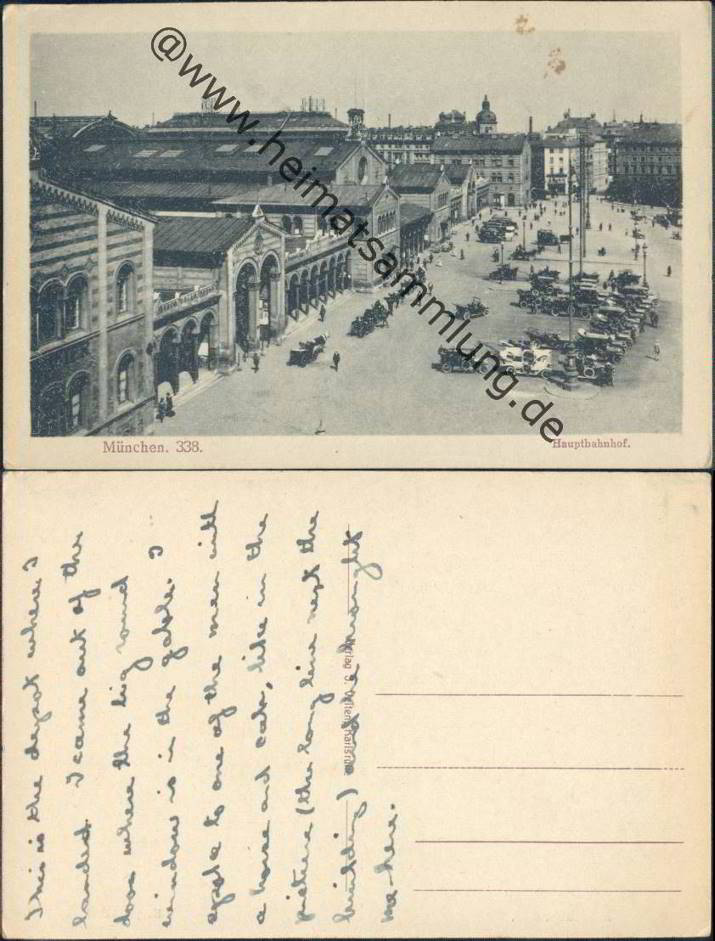 @www.heimatsammlung.de
München. 338.
Hauptbahnhof.
This is the depot where I
landed. I came out of the
door where the big round
window is in the gable. I
spoke to one of the men with
a horse and cab, like in the
picture (the long line next the
building) and he brought
me here.
Verlag